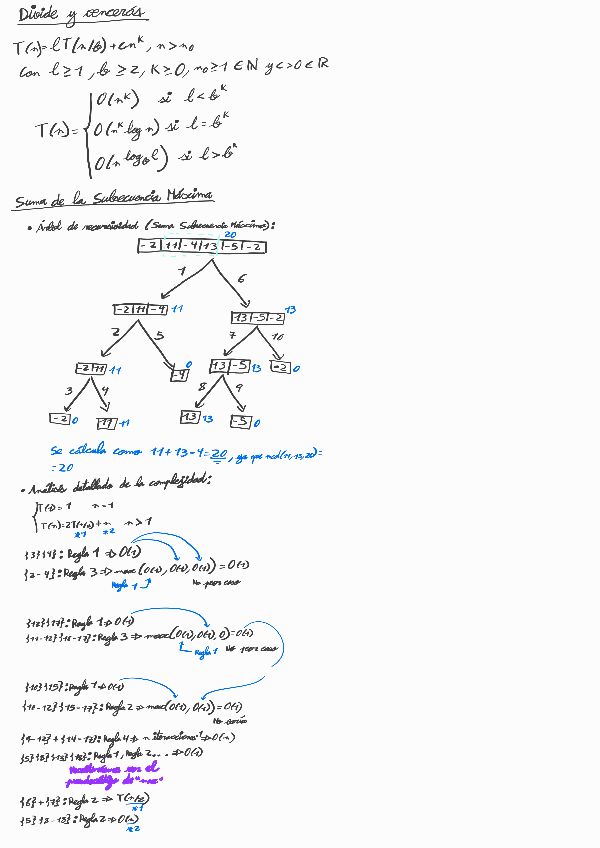 Divide y vencerás
T(n) = lT(n/b) + cn^k, n > n₀
con l ≥ 1, b ≥ 2, k ≥ 0, n₀ ≥ 1 ∈ N y c > 0 ∈ R
O(n^k) si l < b^k
T(n) = O(n^k log n) si l = b^k
O(n^log_b l) si l > b^k
Suma de la Subsecuencia Máxima
• Árbol de recursividad (Suma Subsecuencia Máxima):
20
-2 | 11 | -4 | 13 | -5 | -2
1 6
-2 | 11 | -4 11 13 | -5 | -2 13
2 5 7 10
-2 | 11 11 -4 0 13 | -5 13 -2 0
3 4 8 9
-2 0 11 11 13 13 -5 0
Se calcula como 11+13-4=20, ya que max(11,13,20)=
=20
• Análisis detallado de la complejidad:
T(1) = 1 n=1
T(n) = 2T(n/2) + n n > 1
*1 *2
{3}{4}: Regla 1 => O(1)
{2-4}: Regla 3 => max(O(1), O(1), O(1)) = O(1)
Regla 1 peor caso
{12}{17}: Regla 1 => O(1)
{11-12}{16-17}: Regla 3 => max(O(1), O(1), 0) = O(1)
Regla 1 peor caso
{10}{15}: Regla 1 => O(1)
{10-12}{15-17}: Regla 2 => max(O(1), O(1)) = O(1)
{9-12} + {14-17}: Regla 4 => n iteraciones => O(n)
{5}{8}{13}{18}: Regla 1, Regla 2... => O(1)
en el
{6} + {7}: Regla 2 => T(n/2)
*1
{5}{8-18}: Regla 2 => O(n)
*2